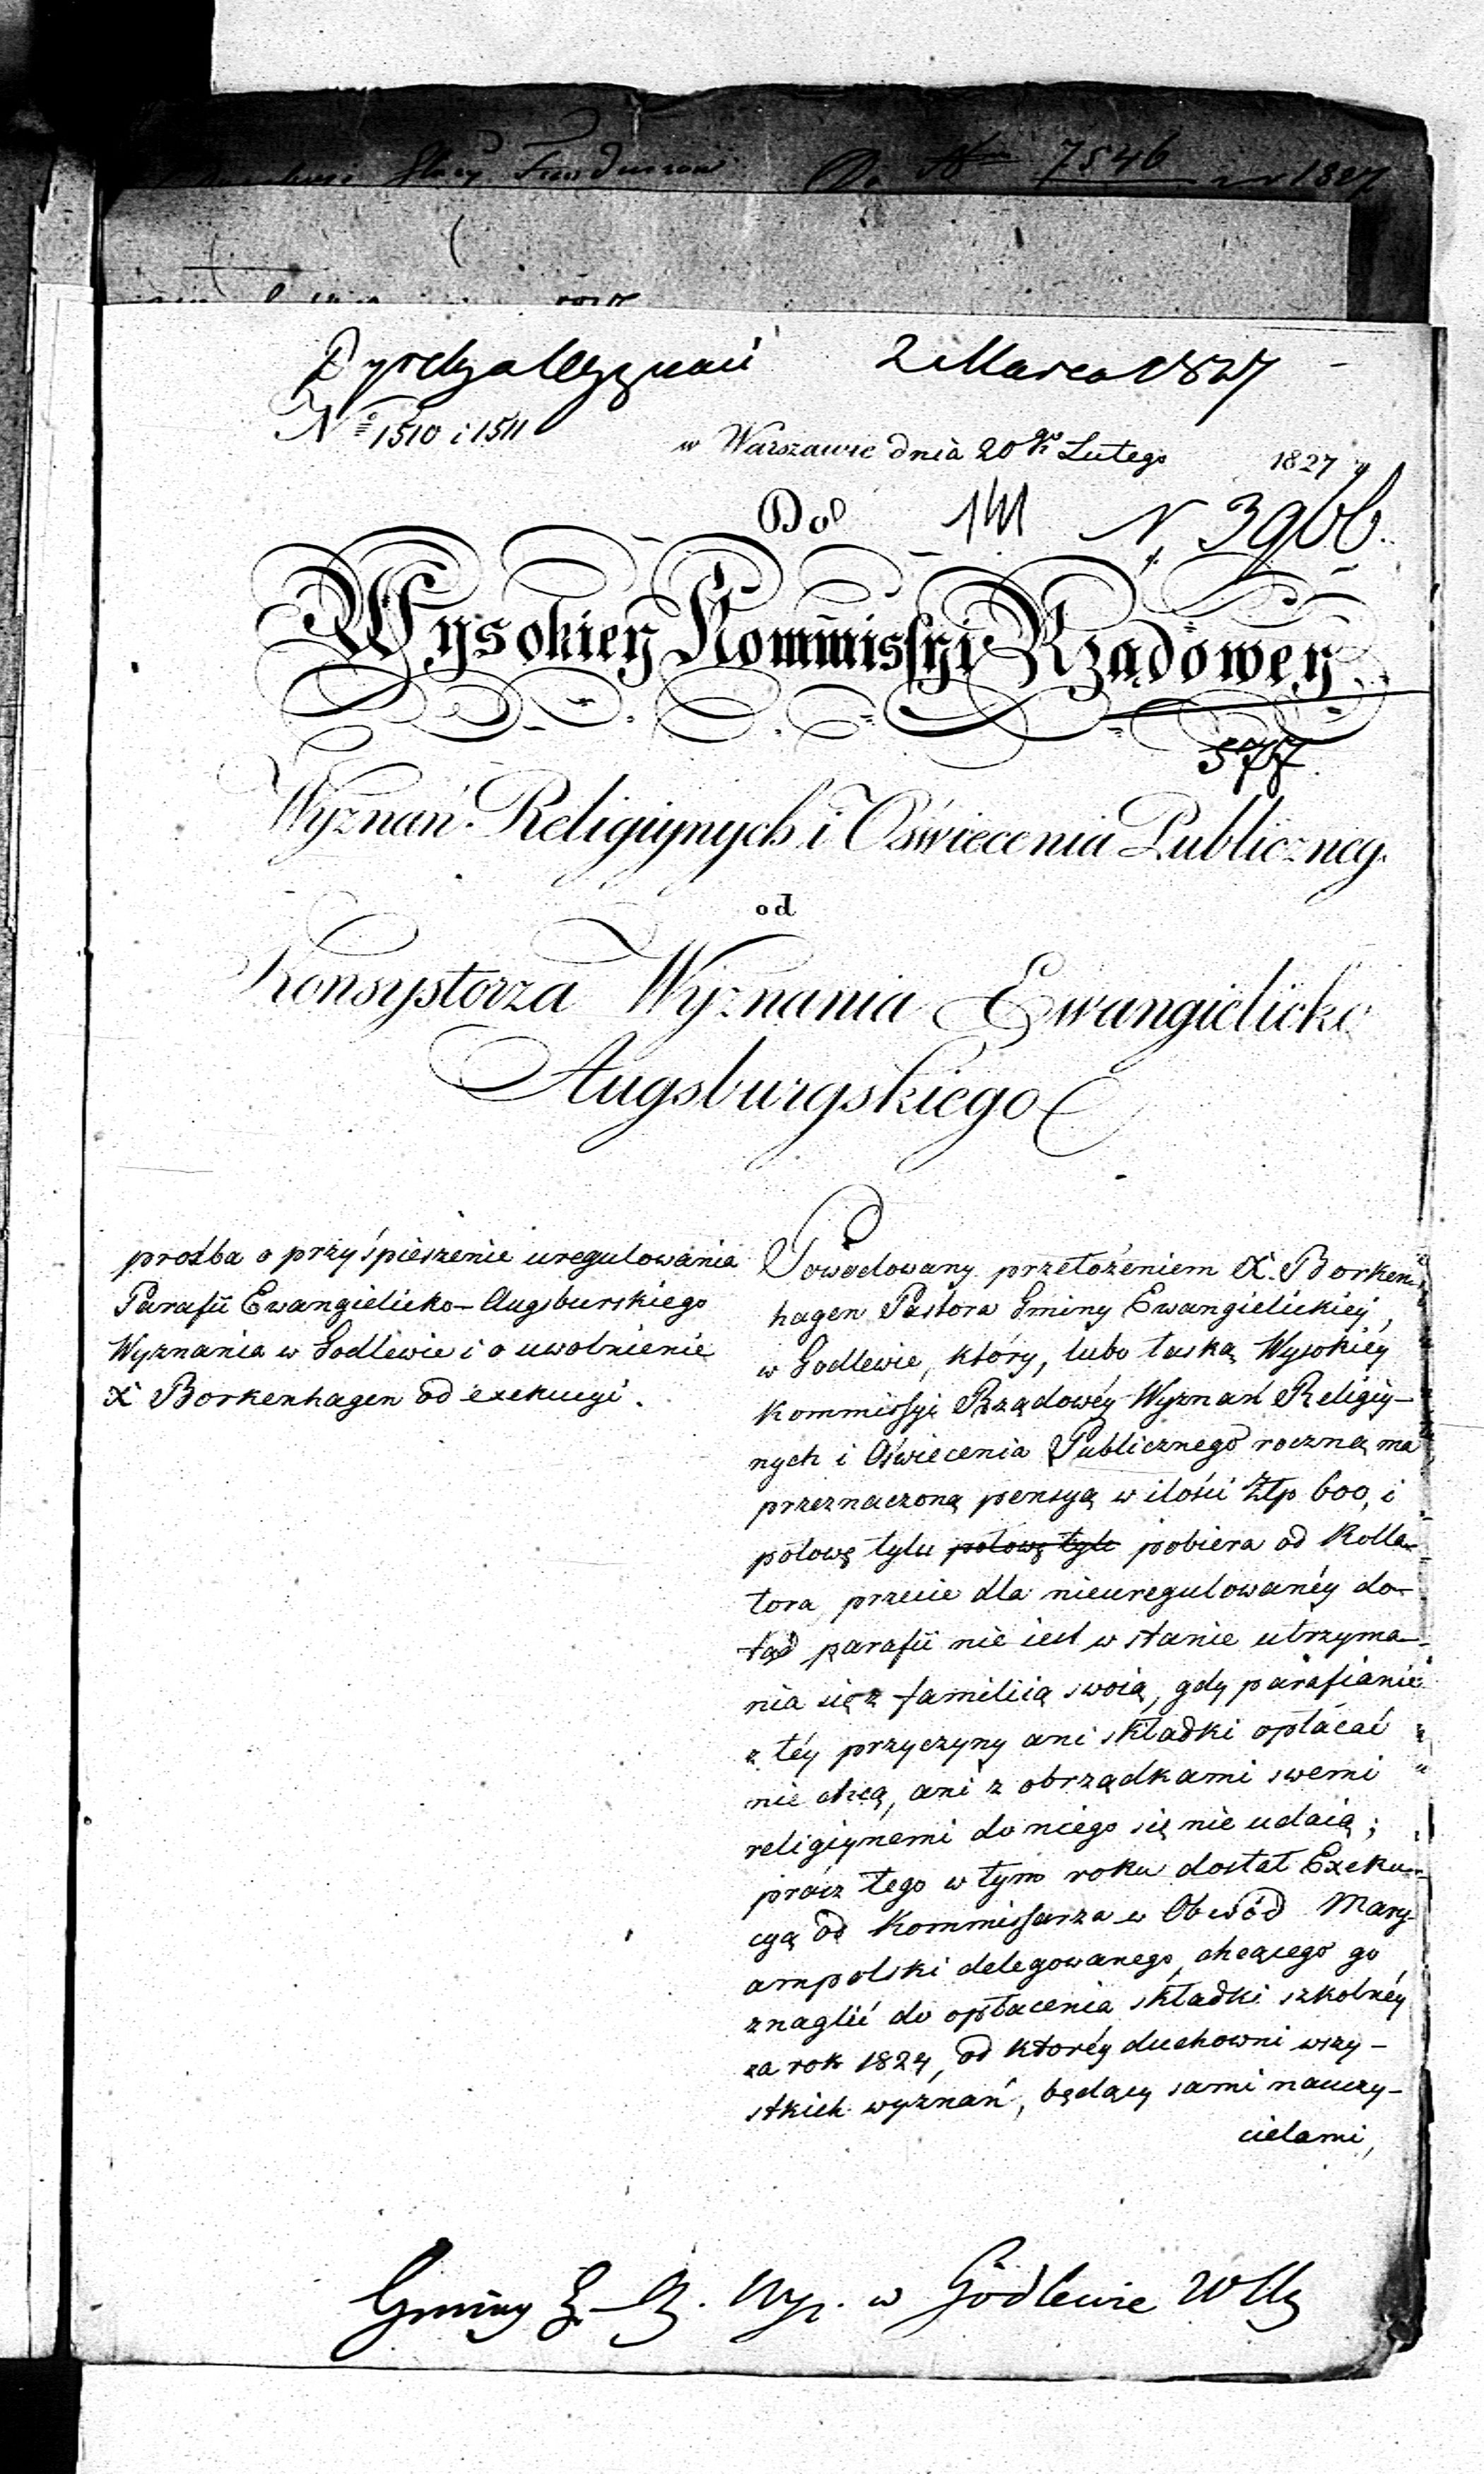 Funduszow Do Nro 7546 1827
Dyrekcya Wyznań 2 Marca 1827
No 1510 i 1511
w Warszawie dnia 20go Lutego 1827 r
Do 141 N. 3966.
Wysokiey Kommissyi Rządowey
577.
Wyznań Religiynych i Oświecenia Publiczneg.
od
Konsystorza Wyznania Ewangielicko
Augsburgskiego
prośba o przyśpieszenie uregulowania
Parafii Ewangielicko-Augsburskiego
Wyznania w Godlewie i o uwolnienie
X Borkenhagen od exekucyi.
Powodowany przełożeniem X. Borken
hagen Pastora Gminy Ewangielickiey,
w Godlewie, który, lubo łaską Wysokiey
Kommissyi Rządowéy Wyznań Religiy-
nych i Oświecenia Publicznego roczną ma
przeznaczoną pensyą w ilości Złp 600, i
połowę tylu połowę tyle pobiera od Kolla-
tora przecie dla nieuregulowanéy do-
tąd parafii nie iest w stanie utrzyma-
nia się z familiią swoią, gdy parafianie
z téy przyczyny ani składki opłacać
nie chcą, ani z obrządkami swemi
religiynemi do niego się nie udaią;
prócz tego w tym roku dostał Exeku-
cyą od Kommissarza w Obwód Mary-
ampolski delegowanego, chcącego go
znaglić do opłacenia składki szkolnéy
za rok 1824, od któréy duchowni wszy-
stkich wyznań, będący sami nauczy-
cielami,
Gminy E. A. Wyz. w Godlewie W A